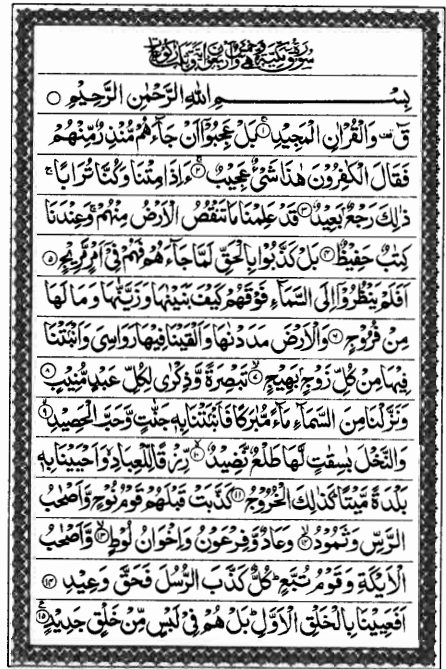 سُوْرَةُ قٓ مَكِّيَّةٌ وَّهِيَ خَمْسٌ وَّاَرْبَعُوْنَ اٰيَةً وَّثَلٰثُ رُكُوْعَاتٍ
بِسْمِ اللّٰهِ الرَّحْمٰنِ الرَّحِيْمِ ○
قٓ ۚ وَالْقُرْاٰنِ الْمَجِيْدِ ۝١ بَلْ عَجِبُوْۤا اَنْ جَآءَهُمْ مُّنْذِرٌ مِّنْهُمْ
فَقَالَ الْكٰفِرُوْنَ هٰذَا شَيْءٌ عَجِيْبٌ ۝٢ ءَاِذَا مِتْنَا وَكُنَّا تُرَابًا ۚ
ذٰلِكَ رَجْعٌۢ بَعِيْدٌ ۝٣ قَدْ عَلِمْنَا مَا تَنْقُصُ الْاَرْضُ مِنْهُمْ ۚ وَعِنْدَنَا
كِتٰبٌ حَفِيْظٌ ۝٤ بَلْ كَذَّبُوْا بِالْحَقِّ لَمَّا جَآءَهُمْ فَهُمْ فِيْۤ اَمْرٍ مَّرِيْجٍ ۝٥
اَفَلَمْ يَنْظُرُوْۤا اِلَى السَّمَآءِ فَوْقَهُمْ كَيْفَ بَنَيْنٰهَا وَزَيَّنّٰهَا وَمَا لَهَا
مِنْ فُرُوْجٍ ۝٦ وَالْاَرْضَ مَدَدْنٰهَا وَاَلْقَيْنَا فِيْهَا رَوَاسِيَ وَاَنْۢبَتْنَا
فِيْهَا مِنْ كُلِّ زَوْجٍۭ بَهِيْجٍ ۝٧ تَبْصِرَةً وَّذِكْرٰى لِكُلِّ عَبْدٍ مُّنِيْبٍ ۝٨
وَنَزَّلْنَا مِنَ السَّمَآءِ مَآءً مُّبٰرَكًا فَاَنْۢبَتْنَا بِهٖ جَنّٰتٍ وَّحَبَّ الْحَصِيْدِ ۝٩
وَالنَّخْلَ بٰسِقٰتٍ لَّهَا طَلْعٌ نَّضِيْدٌ ۝١٠ رِّزْقًا لِّلْعِبَادِ ۙ وَاَحْيَيْنَا بِهٖ
بَلْدَةً مَّيْتًا ؕ كَذٰلِكَ الْخُرُوْجُ ۝١١ كَذَّبَتْ قَبْلَهُمْ قَوْمُ نُوْحٍ وَّاَصْحٰبُ
الرَّسِّ وَثَمُوْدُ ۝١٢ وَعَادٌ وَّفِرْعَوْنُ وَاِخْوَانُ لُوْطٍ ۝١٣ وَّاَصْحٰبُ
الْاَيْكَةِ وَقَوْمُ تُبَّعٍ ؕ كُلٌّ كَذَّبَ الرُّسُلَ فَحَقَّ وَعِيْدِ ۝١٤
اَفَعَيِيْنَا بِالْخَلْقِ الْاَوَّلِ ؕ بَلْ هُمْ فِيْ لَبْسٍ مِّنْ خَلْقٍ جَدِيْدٍ ۝١٥ ع